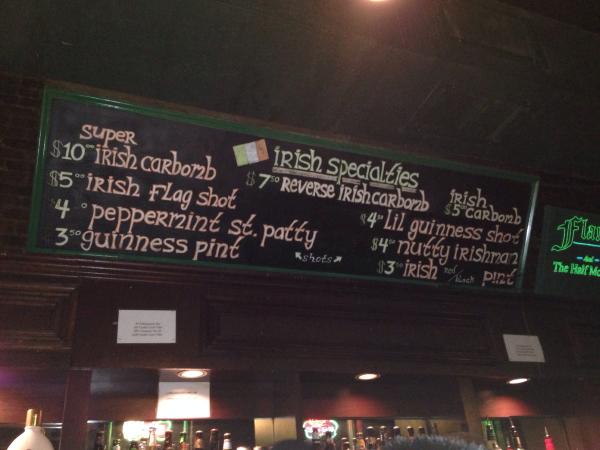 super
$10⁰⁰ irish carbomb
$5⁰⁰ irish flag shot
$4⁰⁰ peppermint st. patty
$3⁵⁰ guinness pint
irish specialties
$7⁵⁰ reverse irish carbomb
shots
irish
$5 carbomb
$4⁰⁰ lil guinness shot
$4⁰⁰ nutty irishman
$3⁵⁰ irish red/black pint
And